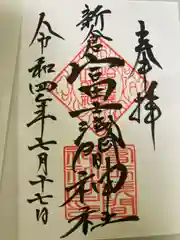 奉拝
新倉
富士浅間神社
令和四年七月十七日